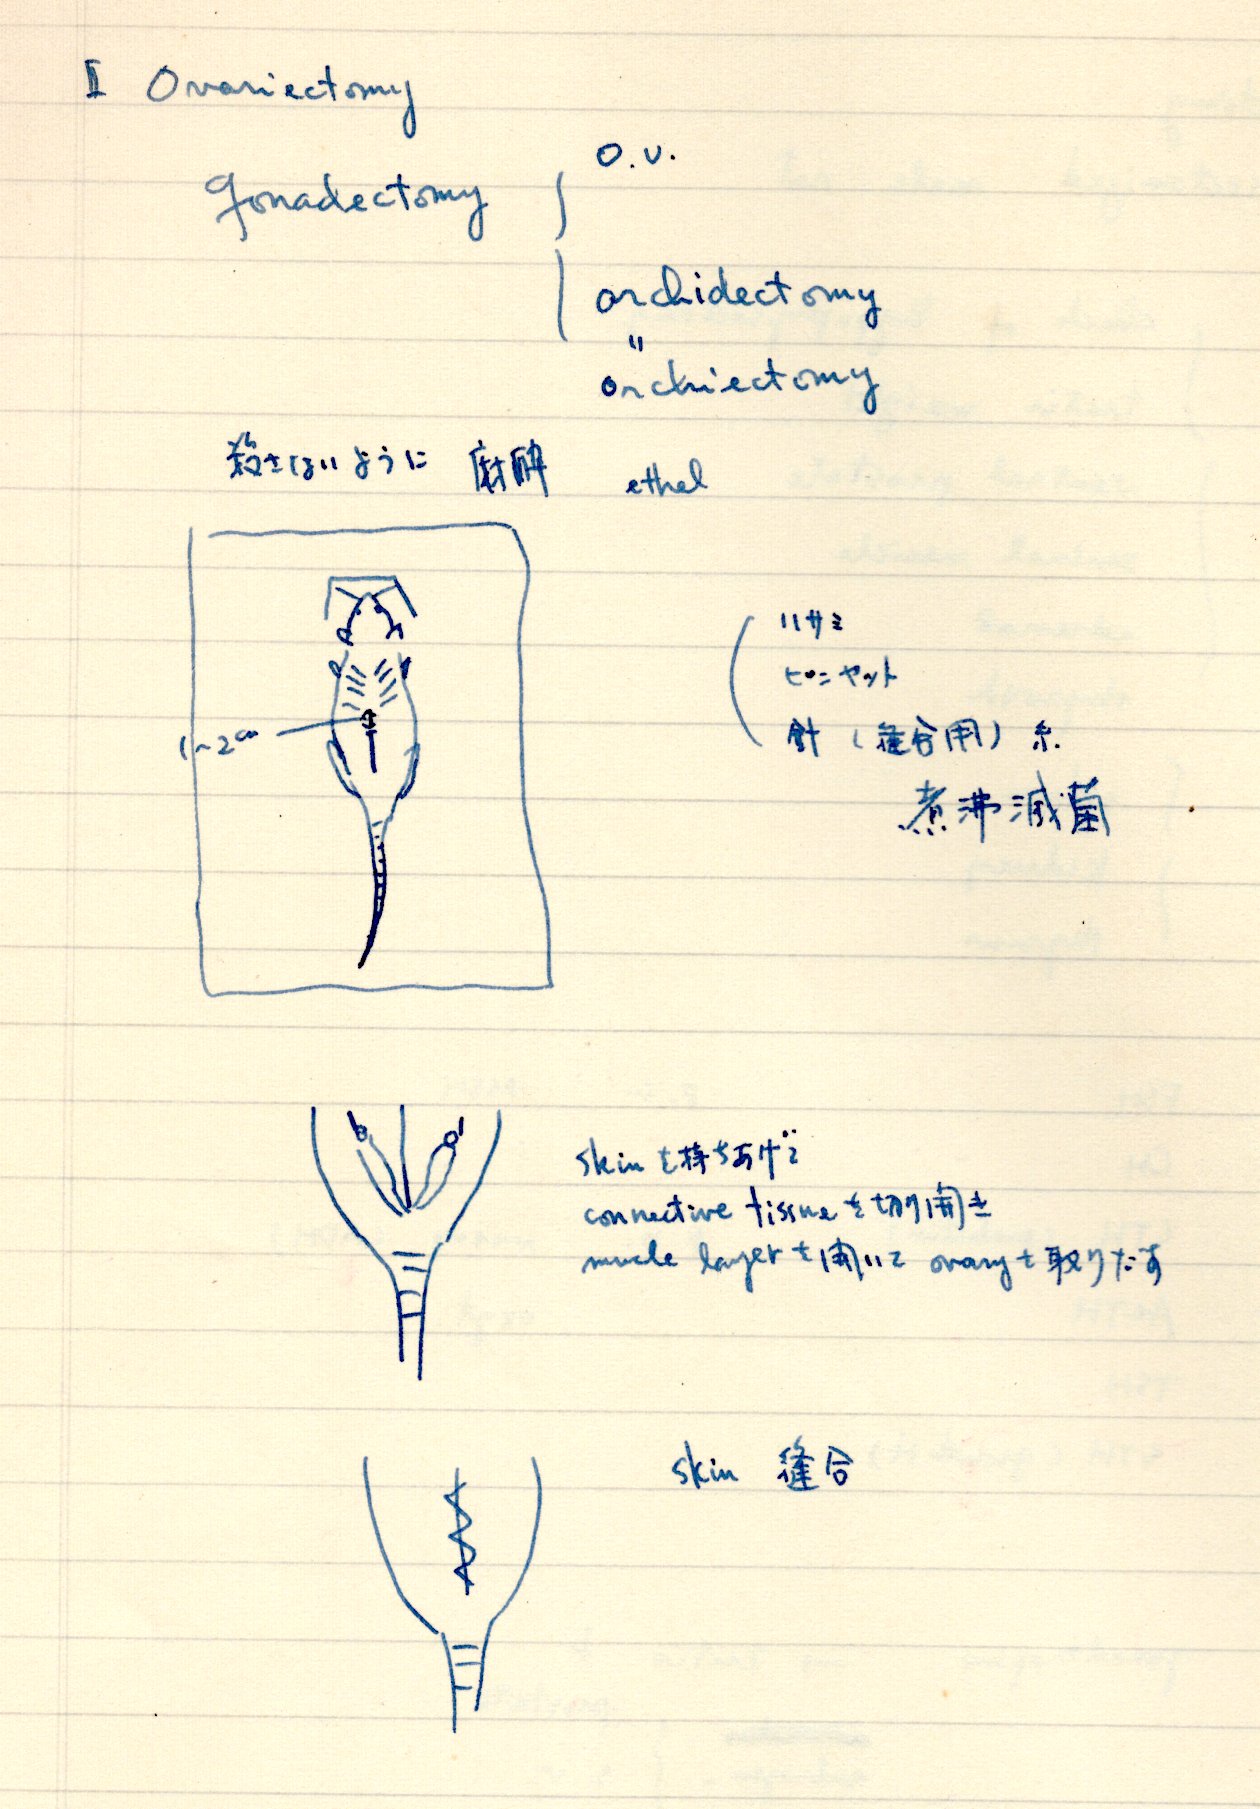 II Ovariectomy
Gonadectomy
O.V.
orchidectomy
〃
orchiectomy
殺さないように 麻酔 ethel
ハサミ
ピンセット
針 (縫合用) 糸
煮沸滅菌
1~2cm
skin を持ちあげて
connective tissue を切り開き
muscle layer を開いて ovary を取りだす
skin 縫合